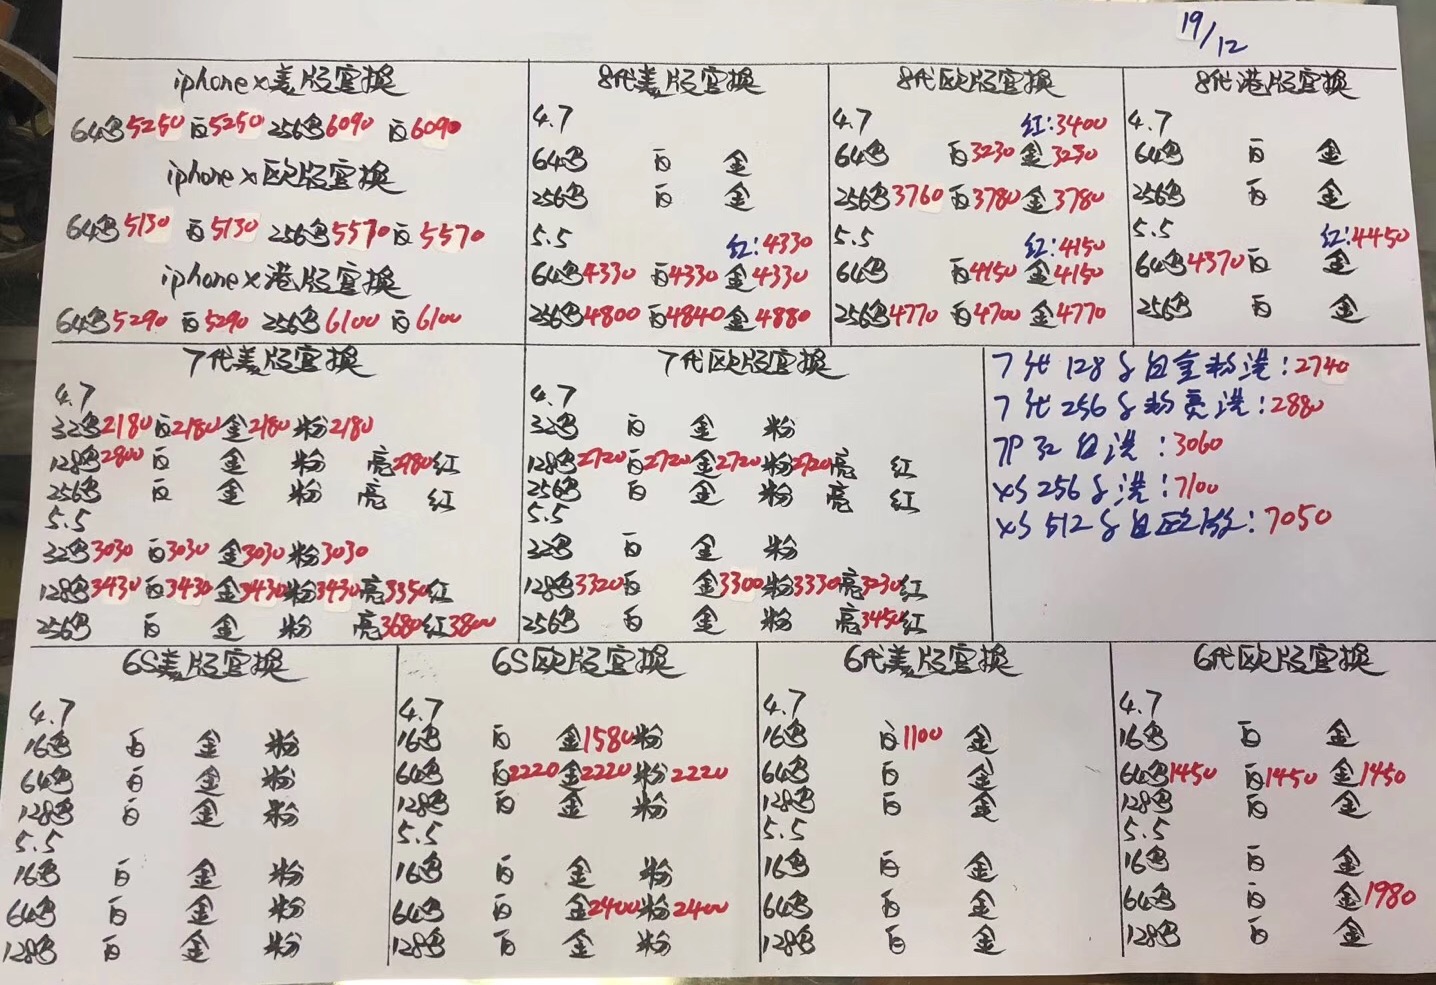 19/12
iphonex美版官换
64黑5250 白5250 256黑6090 白6090
iphonex欧版官换
64黑5130 白5130 256黑5570 白5570
iphonex港版官换
64黑5290 白5290 256黑6100 白6100
8代美版官换
4.7
64黑 白 金
256黑 白 金
5.5 红:4330
64黑4330 白4330 金4330
256黑4800 白4840 金4880
8代欧版官换
4.7 红:3400
64黑 白3230 金3230
256黑3760 白3780 金3780
5.5 红:4150
64黑 白4150 金4150
256黑4770 白4700 金4770
8代港版官换
4.7
64黑 白 金
256黑 白 金
5.5 红:4450
64黑4370 白 金
256黑 白 金
7代美版官换
4.7
32黑2180 白2180 金2180 粉2180
128黑2800 白 金 粉 亮2780 红
256黑 白 金 粉 亮 红
5.5
32黑3030 白3030 金3030 粉3030
128黑3430 白3430 金3430 粉3430 亮3350 红
256黑 白 金 粉 亮3680 红3800
7代欧版官换
4.7
32黑 白 金 粉
128黑2720 白2720 金2720 粉2720 亮 红
256黑 白 金 粉 亮 红
5.5
32黑 白 金 粉
128黑3320 白 金3300 粉3330 亮3230 红
256黑 白 金 粉 亮3450 红
7代128G白金粉港:2740
7代256G粉亮港:2880
7P 32白港:3060
XS 256G港:7100
XS 512G白欧:7050
6S美版官换
4.7
16黑 白 金 粉
64黑 白 金 粉
128黑 白 金 粉
5.5
16黑 白 金 粉
64黑 白 金 粉
128黑 白 金 粉
6S欧版官换
4.7
16黑 白 金1580 粉
64黑 白2220 金2220 粉2220
128黑 白 金 粉
5.5
16黑 白 金 粉
64黑 白 金2400 粉2400
128黑 白 金 粉
6代美版官换
4.7
16黑 白1100 金
64黑 白 金
128黑 白 金
5.5
16黑 白 金
64黑 白 金
128黑 白 金
6代欧版官换
4.7
16黑 白 金
64黑1450 白1450 金1450
128黑 白 金
5.5
16黑 白 金
64黑 白 金1980
128黑 白 金